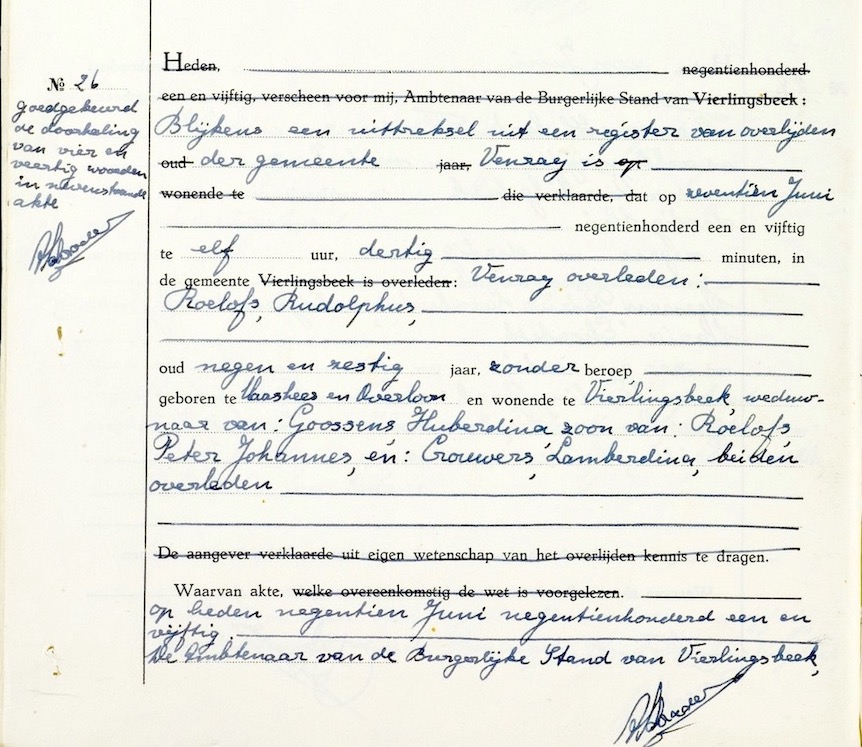 Nº 26
goedgekeurd
de doorhaling
van vier en
veertig woorden
in nevenstaande
akte
Heden, negentienhonderd
een en vijftig, verscheen voor mij, Ambtenaar van de Burgerlijke Stand van Vierlingsbeek:
Blijkens een uittreksel uit een register van overlijden
oud der gemeente jaar, Venray is op
wonende te die verklaarde, dat op zeventien Juni
negentienhonderd een en vijftig
te elf uur, dertig minuten, in
de gemeente Vierlingsbeek is overleden: Venray overleden:
Roelofs, Rudolphus,
oud negen en zestig jaar, zonder beroep
geboren te Maashees en Overloon en wonende te Vierlingsbeek, weduw-
naar van: Goossens Huberdina, zoon van: Roelofs
Peter Johannes, en: Crouwers, Lamberdina, beiden
overleden
De aangever verklaarde uit eigen wetenschap van het overlijden kennis te dragen.
Waarvan akte, welke overeenkomstig de wet is voorgelezen.
op heden negentien Juni negentienhonderd een en
vijftig.
De Ambtenaar van de Burgerlijke Stand van Vierlingsbeek,